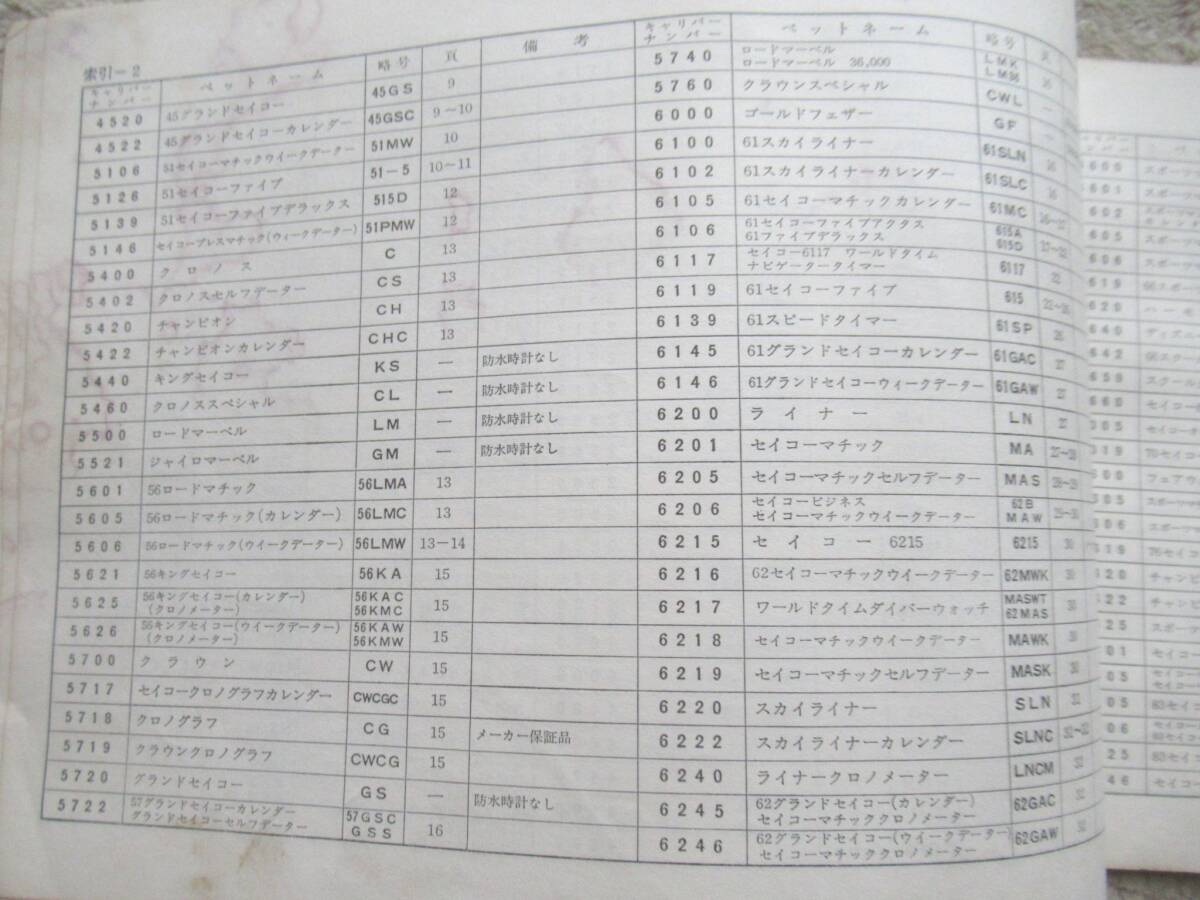 索引-2
キャリバーナンバー ペットネーム 略号 頁 備考
4520 45グランドセイコー 45GS 9
4522 45グランドセイコーカレンダー 45GSC 9~10
5106 51セイコーマチックウイークデーター 51MW 10
5126 51セイコーファイブ 51-5 10~11
5139 51セイコーファイブデラックス 515D 12
5146 セイコープレスマチック(ウィークデーター) 51PMW 12
5400 クロノス C 13
5402 クロノスセルフデーター CS 13
5420 チャンピオン CH 13
5422 チャンピオンカレンダー CHC 13
5440 キングセイコー KS ― 防水時計なし
5460 クロノススペシャル CL ― 防水時計なし
5500 ロードマーベル LM ― 防水時計なし
5521 ジャイロマーベル GM ― 防水時計なし
5601 56ロードマチック 56LMA 13
5605 56ロードマチック(カレンダー) 56LMC 13
5606 56ロードマチック(ウイークデーター) 56LMW 13-14
5621 56キングセイコー 56KA 15
5625 56キングセイコー(カレンダー) 56KAC 15
(クロノメーター) 56KMC
5626 56キングセイコー(ウイークデーター) 56KAW 15
(クロノメーター) 56KMW
5700 クラウン CW 15
5717 セイコークロノグラフカレンダー CWCGC 15
5718 クロノグラフ CG 15 メーカー保証品
5719 クラウンクロノグラフ CWCG 15
5720 グランドセイコー GS ― 防水時計なし
5722 57グランドセイコーカレンダー 57GSC 16
グランドセイコーセルフデーター GSS
キャリバーナンバー ペットネーム 略号 頁
5740 ロードマーベル LMK
ロードマーベル 36,000
5760 クラウンスペシャル CWL ―
6000 ゴールドフェザー GF ―
6100 61スカイライナー 61SLN 16
6102 61スカイライナーカレンダー 61SLC 16
6105 61セイコーマチックカレンダー 61MC
6106 61セイコーファイブアクタス 615A
61ファイブデラックス 615D
6117 セイコー6117 ワールドタイム 6117 22
ナビゲータータイマー
6119 61セイコーファイブ 615
6139 61スピードタイマー 61SP 26
6145 61グランドセイコーカレンダー 61GAC 27
6146 61グランドセイコーウィークデーター 61GAW 27
6200 ライナー LN 27
6201 セイコーマチック MA 27~28
6205 セイコーマチックセルフデーター MAS
6206 セイコービジネス 62B
セイコーマチックウイークデーター MAW
6215 セイコー6215 6215 30
6216 62セイコーマチックウイークデーター 62MWK 30
6217 ワールドタイムダイバーウォッチ MASWT 30
62MAS
6218 セイコーマチックウイークデーター MAWK 30
6219 セイコーマチックセルフデーター MASK 30
6220 スカイライナー SLN 32
6222 スカイライナーカレンダー SLNC
6240 ライナークロノメーター LNCM 32
6245 62グランドセイコー(カレンダー) 62GAC 32
セイコーマチッククロノメーター
6246 62グランドセイコー(ウイークデーター) 62GAW 32
セイコーマチッククロノメーター